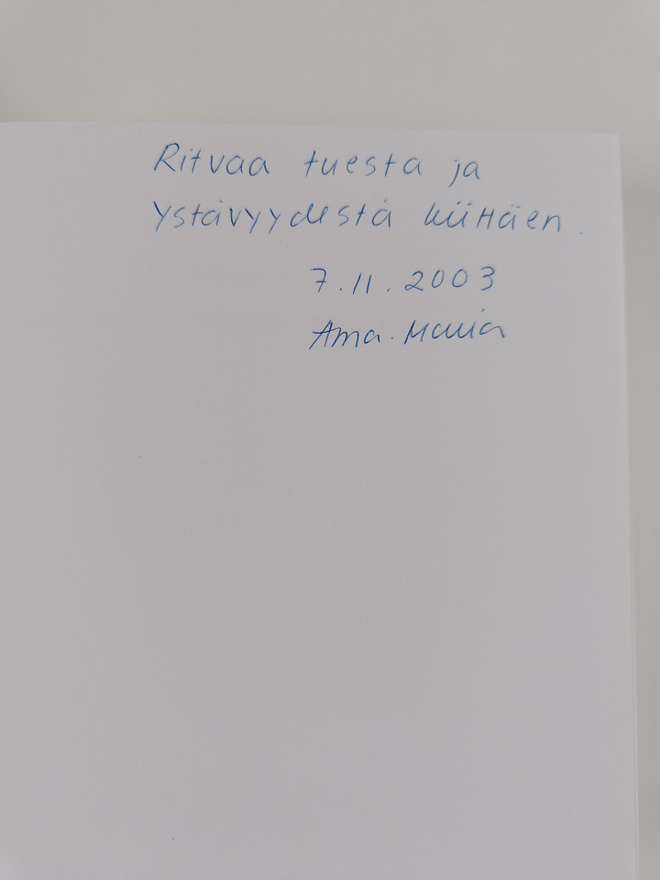 Ritvaa tuesta ja
ystävyydestä kiittäen.
7.11.2003
Anna-Maria